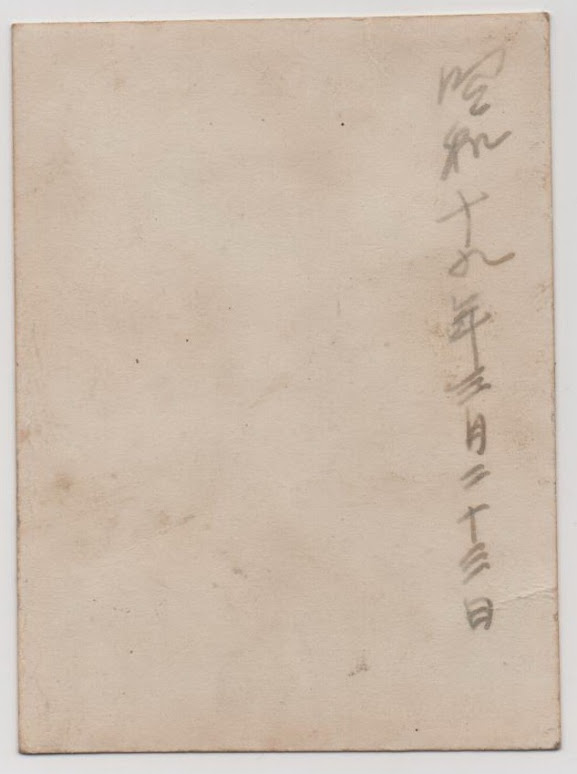 昭和十九年三月二十三日